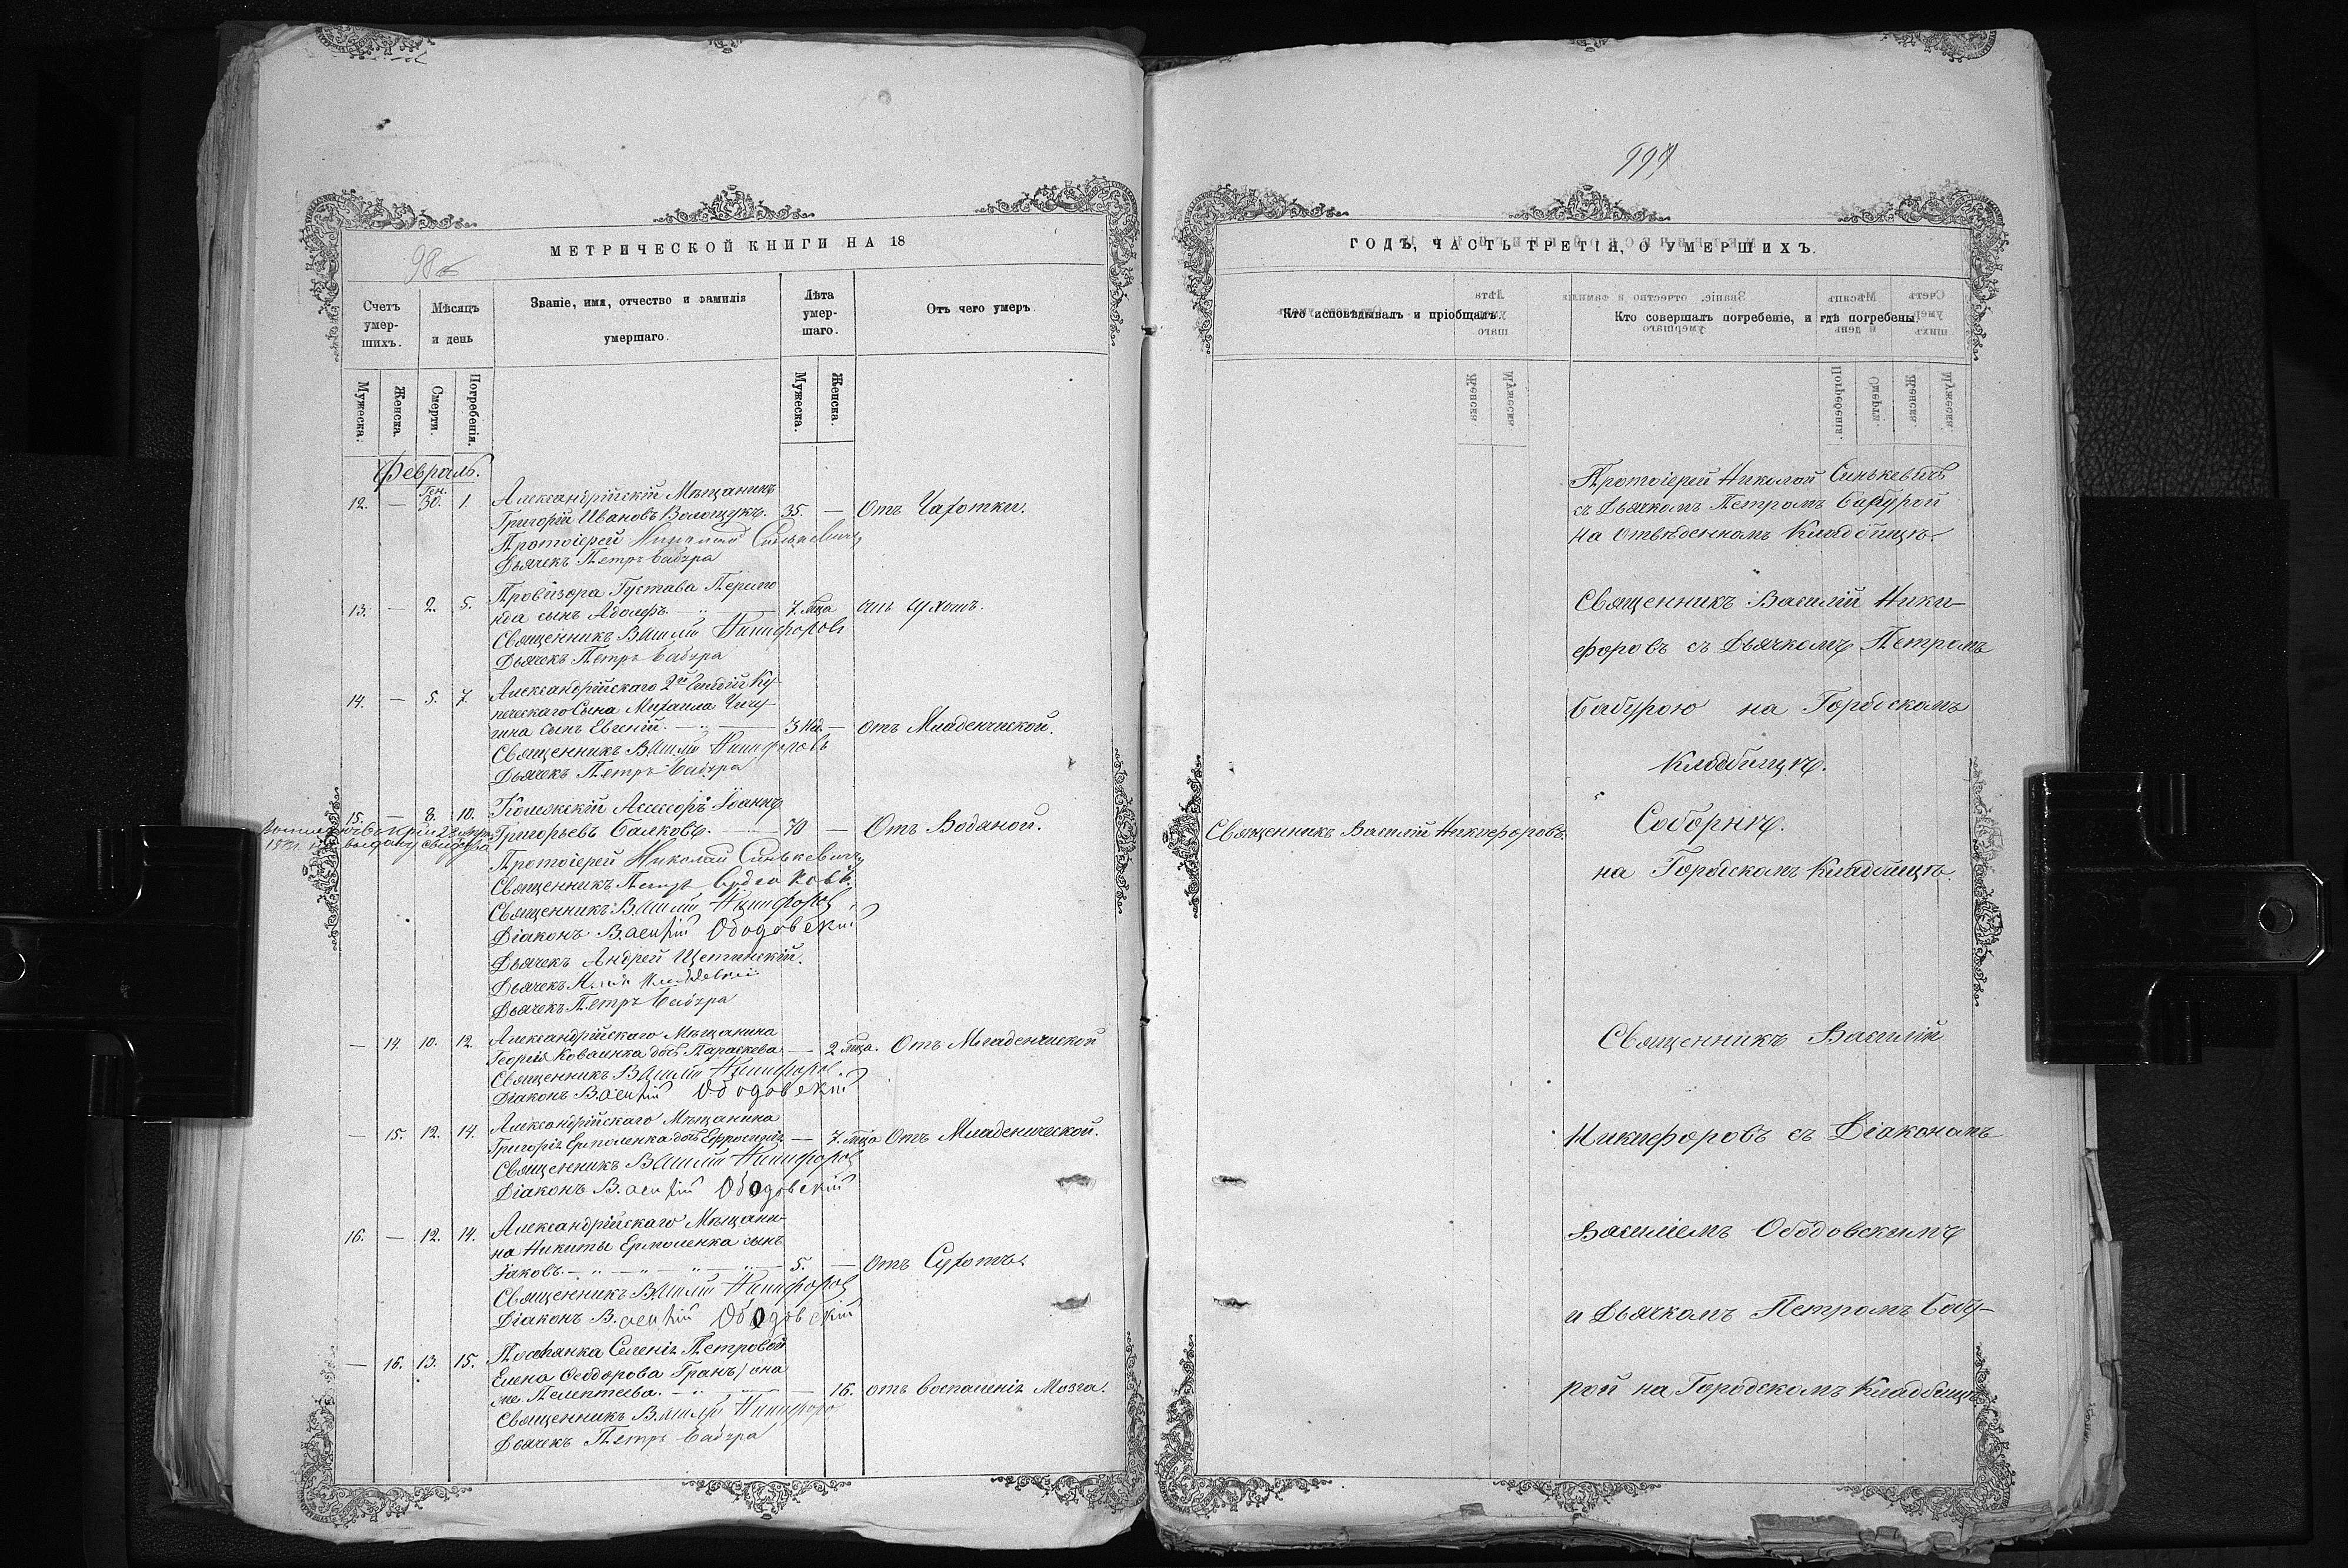 98
МЕТРИЧЕСКОЙ КНИГИ НА 18
Счетъ умер-шихъ.
Мѣсяцъ и день
Званіе, имя, отчество и фамилія умершаго.
Лѣта умер-шаго.
Отъ чего умеръ
Мужеска.
Женска.
Смерти.
Погребенія.
Мужеска.
Женска.
Февраль.
Ген.
12. — 30. 1. Александрійскій Мѣщанинъ
Григорій Ивановъ Волощукъ. 35. — Отъ Чахотки.
Протоіерей Николай Синькевичъ
Дьячекъ Петръ Бабура
Провизора Густава
13. — 2. 5. сынъ Адольфъ — 7. м̃ца
Священникъ Василій Никифоровъ
Дьячекъ Петръ Бабура
14. — 5. 7. Александрійскаго 2й Гильдіи Ку-
печескаго Сына Михаила Чичу-
гина сынъ Евгеній. — 3 нед. — отъ Младенческой.
Священникъ Василій Никифоровъ
Дьячекъ Петръ Бабура
15. — 8. 10. Колежскій Ассесоръ Іоаннъ
Григорьевъ Балковъ. — 70 — Отъ Водяной.
Протоіерей Николай Синькевичъ
Священникъ Петръ
Священникъ Василій Никифоровъ
Діаконъ Василій Ободовскій
Дьячекъ Андрей Щетинскій.
Дьячекъ
Дьячекъ Петръ Бабура
— 14. 10. 12. Александрійскаго Мѣщанина
Георгія Коваленка дочь Параскева — 2 м̃ца. Отъ Младенческой
Священникъ Василій Никифоровъ
Діаконъ Василій Ободовскій
— 15. 12. 14. Александрійскаго Мѣщанина
Григорія Ермоленка дочь Ефросинія — 7. м̃ца Отъ Младенческой.
Священникъ Василій Никифоровъ
Діаконъ Василій Ободовскій
16. — 12. 14. Александрійскаго Мѣщани-
на Никиты Ермоленка сынъ
Іаковъ. — 5. — Отъ Сухоты
Священникъ Василій Никифоровъ
Діаконъ Василій Ободовскій
— 16. 13. 15. Петровой
Елена Ѳеодорова она
же — 16. отъ Воспаленія Мозга.
Священникъ Василій Никифоровъ
Дьячекъ Петръ Бабура
999
ГОДЪ, ЧАСТЬ ТРЕТІЯ, О УМЕРШИХЪ.
Кто исповѣдывалъ и пріобщалъ.
Кто совершалъ погребеніе, и гдѣ погребены.
Протоіерей Николай Синькевичъ
съ Дьячкомъ Петромъ Бабурой
на отвѣденномъ Кладбищѣ.
Священникъ Василій Ники-
форовъ съ Дьячкомъ Петромъ
Бабурою на Городскомъ
Кладбищѣ.
Священникъ Василій Никифоровъ. Соборнѣ.
на Городскомъ Кладбищѣ.
Священникъ Василій
Никифоровъ съ Діакономъ
Василіемъ Ободовскимъ
и Дьячкомъ Петромъ Бабу-
рой на Городскомъ Кладбищѣ